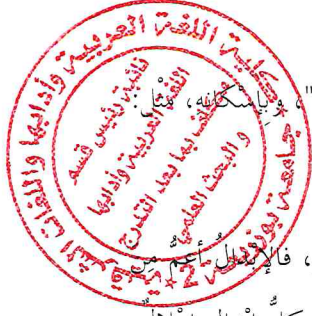 كلية اللغة العربية وآدابها واللغات الشرقية
جامعة بوزريعة - 2
نائبة رئيس قسم
اللغة العربية وآدابها
بما بعد التدرج
و البحث العلمي
"، وَبِإِسْكَانِه، مِثْل:
، فالإبْدَالُ أعَمُّ مِن